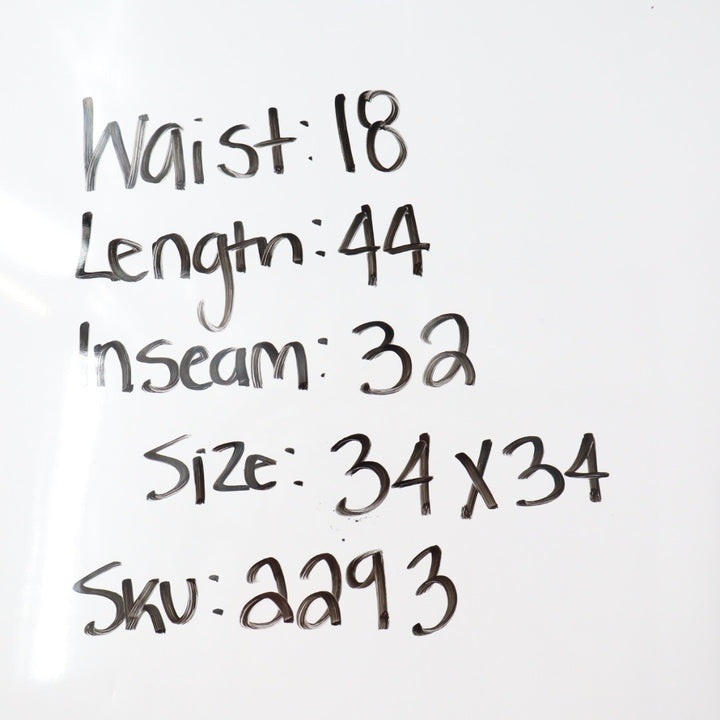 Waist: 18
Length: 44
Inseam: 32
Size: 34x34
SKU: 2293